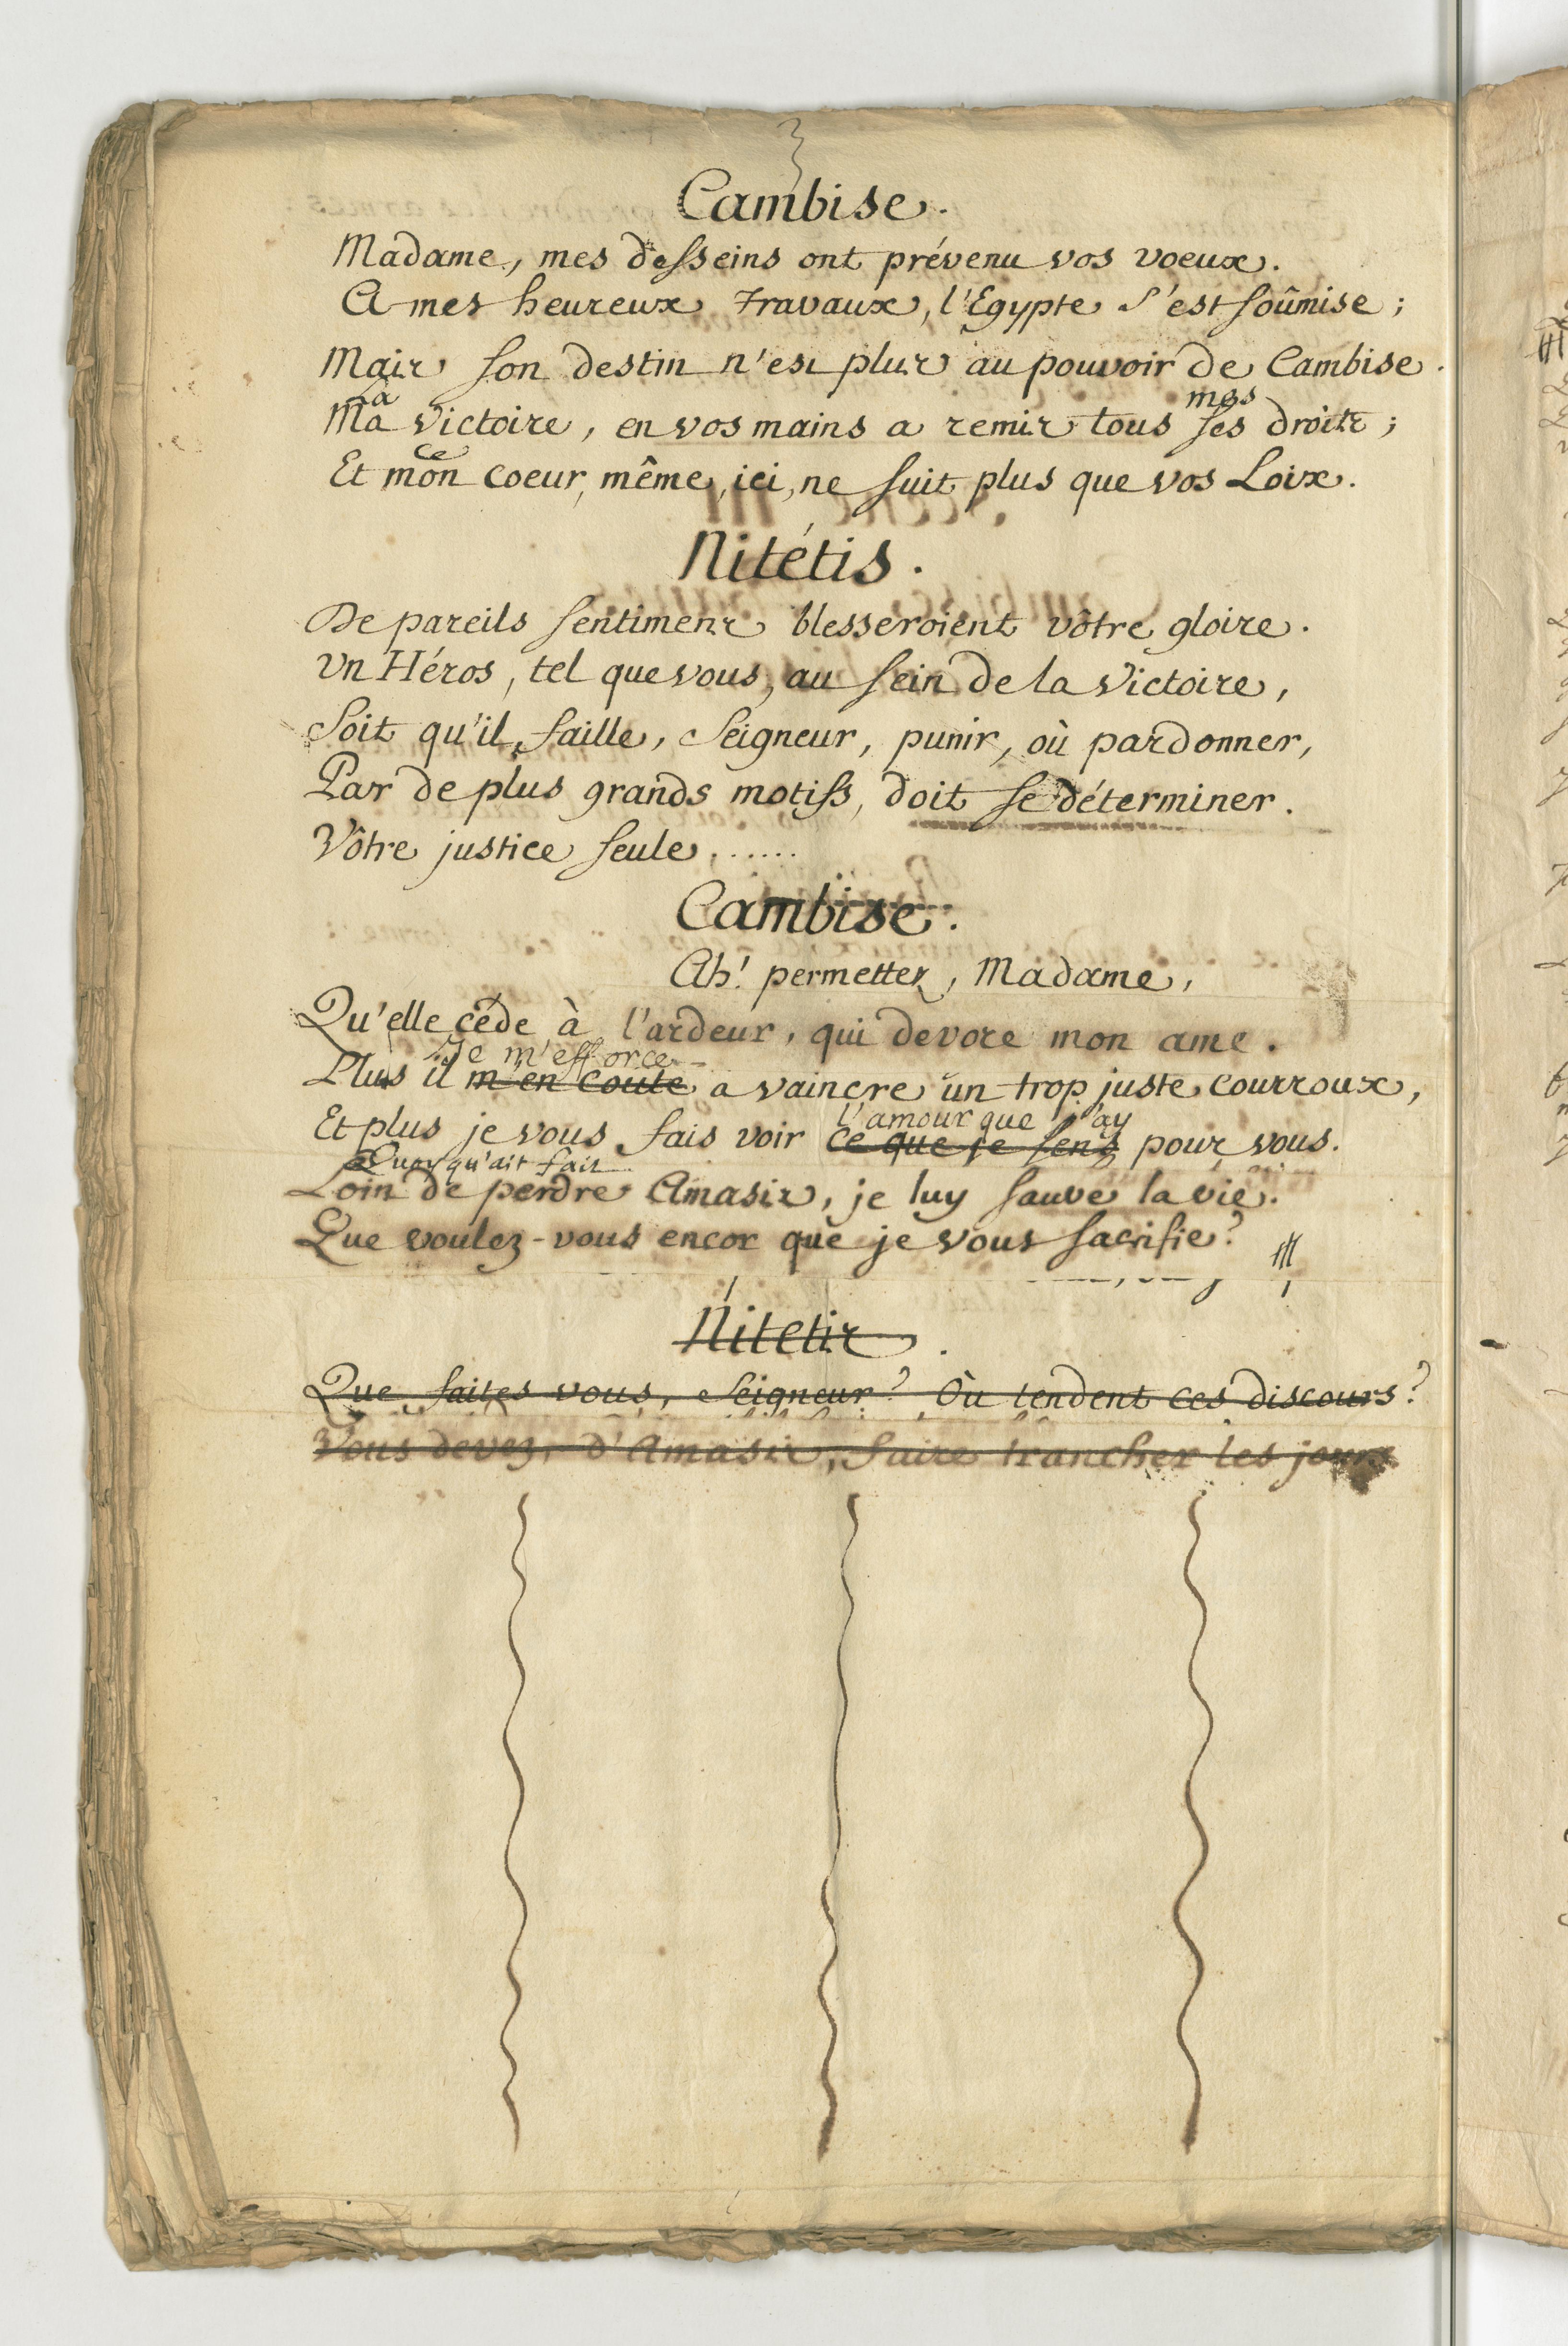 Cambise.
Madame, mes desseins ont prévenu vos voeux.
A mes heureux travaux, l'Egypte s'est soûmise ;
Mais son destin n'est plus au pouvoir de Cambise.
a mes
Ma victoire, en vos mains a remis tous ses droits ;
ce
Et mon coeur, même, ici, ne suit plus que vos Loix.
Nitétis.
De pareils sentimens blesseroient vôtre gloire.
Un Héros, tel que vous, au sein de la Victoire,
Soit qu'il faille, Seigneur, punir, où pardonner,
Par de plus grands motifs, doit se déterminer.
Vôtre justice seule......
Cambise.
Ah! permettez, Madame,
Qu'elle céde à l'ardeur, qui devore mon ame.
Je m'efforce
Plus il m'en coute a vaincre un trop juste courroux,
l'amour que j'ay
Et plus je vous fais voir ce que je sens pour vous.
Quoy qu'ait fait
Loin de perdre Amasis, je luy sauve la vie.
Que voulez-vous encor que je vous sacrifie?
Nitetis.
Que faites vous, Seigneur? Où tendent ces discours?
Vous devez, d'Amasis, faire trancher les jours